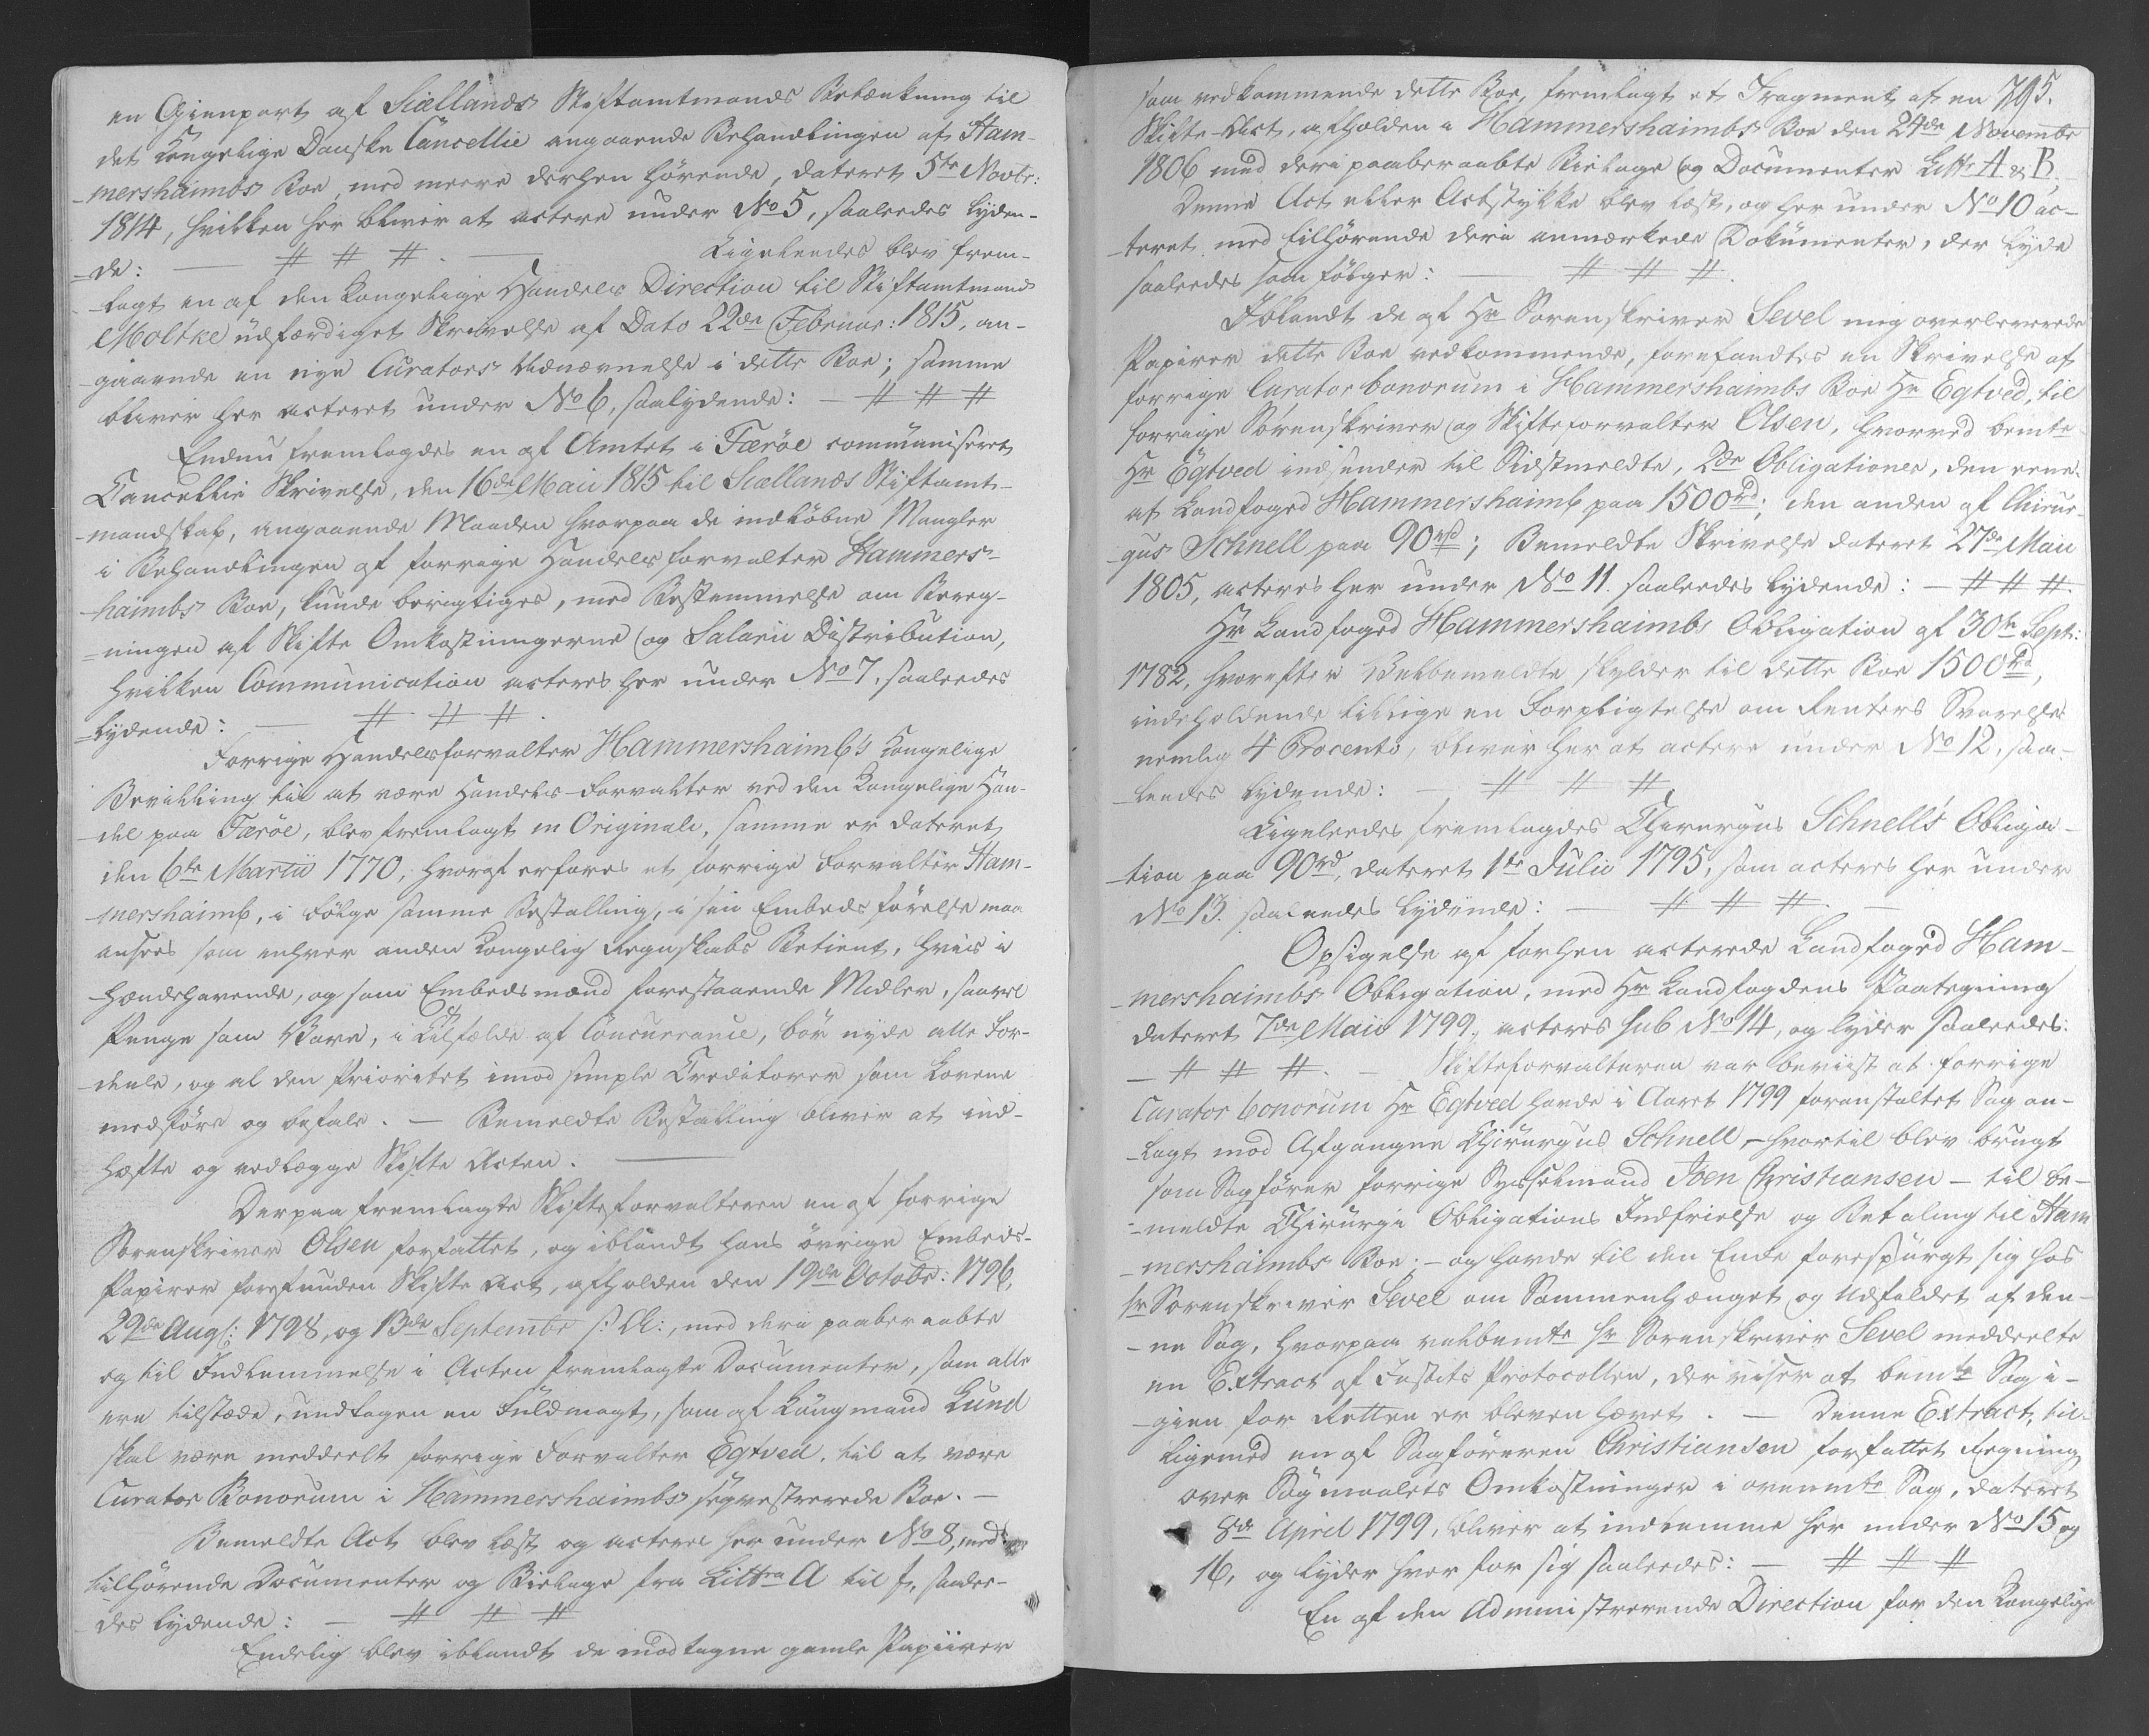 en Gienpart af Siællands Stiftamtmands Betænkning til
det Kongelige Danske Cancellie angaaende Behandlingen af Ham-
-mershaimbs Boe, med meere derhen hørende, dateret 5te Novbr:
1814, hvilken her bliver at actere under No 5, saaledes lyden-
-de: — # # #. — Ligeleedes blev frem-
-lagt en af den kongelige Handels Direction til Stiftamtmand
Moltke udfærdiget Skrivelse af Dato 22de Februar: 1815, an-
-gaaende en nye Curators Udnævnelse i dette Boe; samme
bliver her acteret under No 6, saalydende: — # # #
Endnu fremlagdes en af Amtet i Færöe communiseret
Cancellie Skrivelse, den 16de Maii 1815 til Siællands Stiftamt-
-mandskab, angaaende Maaden hvorpaa de indløbne Mangler
i Behandlingen af forrige Handelsforvalter Hammers-
-haimbs Boe, kunde berigtiges, med Bestemmelse om Bereg-
-ningen af Skifte Omkostningerne og Salarii Distribution,
hvilken Communication acteres her under No 7. saaleedes
-lydende: — # # #.
Forrige Handelsforvalter Hammershaimb's Kongelige
Bevilling til at være Handels-Forvalter ved den Kongelige Han-
-del paa Færöe, blev fremlagt in Originali, samme er dateret
den 6te Martii 1770, hvoraf erfares at forrige Forvalter Ham-
-mershaimb, i Følge samme Bestalling, i sin Embeds førelse maa
ansees som enhver anden Kongelig Regnskabs Betient, hvis i
Hændehavende, og som Embedsmand forestaaende Midler, saavel
Penge som Vare, i Tilfælde af Concurrance, bör nyde alle For-
-deele, og al den Prioritet imod simple Creditorer som Lovene
medføre og befale. — Bemeldte Bestalling bliver at ind-
hæfte og vedlægge Skifte Acten. —
Derpaa fremlagte Skifteforvalteren en af forrige
Sorenskriver Olsen forfattet, og iblandt hans övrige Embeds-
Papirer forefunden Skifte Act, afholden den 19de Octobr: 1796,
29de Augs: 1798, og 13de Septembr s: A:, med deri paaberaabte
og til Indlemmelse i Acten fremlagte Documenter, som alle
ere tilstæde, undtagen en Fuldmagt, som af Kiøgmand Lund
skal være meddeelt forrige Forvalter Egtved, til at være
Curator Bonorum i Hammershaimbs seqvestrerede Boe. —
Bemeldte Act blev læst og acteres her under No 8, med
tilhørende Documenter og Bielage fra Littra A til f, saalee-
des lydende: — # # #
Endelig blev iblandt de modtagne gamle Papiirer
795.
som vedkommende dette Boe, fremlagt et Fragment af en
Skifte-Act, afholden i Hammershaimbs Boe den 24de Novembr
1806 med deri paaberaabte Bielage og Documenter Litr A & B.
Denne Act eller Actstykke blev læst, og her under No 10 ac-
-teret med tilhörende deri anmærkede Dokumenter, der lyde
saaleedes som følger: — # # #.
Iblandt de af Hr Sorenskriver Sevel mig overleverede
Papirer dette Boe vedkommende, forefandtes en Skrivelse af
forrige Curator bonorum i Hammershaimbs Boe Hr Egtved, til
forrige Sorenskriver og Skifteforvalter Olsen, hvorved bemte
Hr Egtved indsender til Sidstmeldte, 2de Obligationer, den eene
af Landfoged Hammershaimb paa 1500rd; den anden af Chirur-
gus Schnell paa 90rd; Bemeldte Skrivelse dateret 27de Maii
1805, acteres her under No 11. saaleedes lydende: — # # #.
Hr Landfoged Hammershaimbs Obligation af 30te Septr:
1782, hvorefter Velbemeldte skylder til dette Boe 1500rd,
indeholdende tillige en Forpligtelse om Renters Svarelse
nemlig 4 Procento, bliver her at actere under No 12, saa-
-leedes lydende: — # # #
Ligeleedes fremlagdes Chirurgus Schnell's Obliga-
-tion paa 90rd, dateret 1te Julii 1795, som acteres her under
No 13. saaleedes lydende: — # # #. —
Opsigelse af forhen acterede Landfoged Ham-
-mershaimbs Obligation, med Hr Landfogdens Paategning
dateret 7de Maii 1799, acteres sub No 14, og lyder saaleedes:
— # # #. — Skifteforvalteren var beviist at forrige
Curator bonorum Hr Egtved havde i Aaret 1799 foranstaltet Sag an-
-lagt mod Afgangne Chirurgus Schnell, - hvortil blev brugt
som Sagfører forrige Sysselmand Joen Christiansen — til be-
-meldte Chirurgi Obligations Indfrielse og Betaling til Ham
-mershaimbs Boe; - og havde til den Ende forespurgt sig hos
hr Sorenskriver Sevel om Sammenhænget og Udfaldet af den-
-ne Sag, hvorpaa velbemte hr Sorenskriver Sevel meddeelte
en Extract af Justits Protocollen, der viser at bemte Sag i-
-gien for Retten er bleven hævet. — Denne Extract, til-
ligemed en af Sagføreren Christiansen forfattet Regning
over Søgmaalets Omkostninger i ovenmte Sag, dateret
8de April 1799, bliver at indlemme her under No 15 og
16, og lyder hver for sig saaleedes: — # # #
En af den Administrerende Direction for den Kongelige